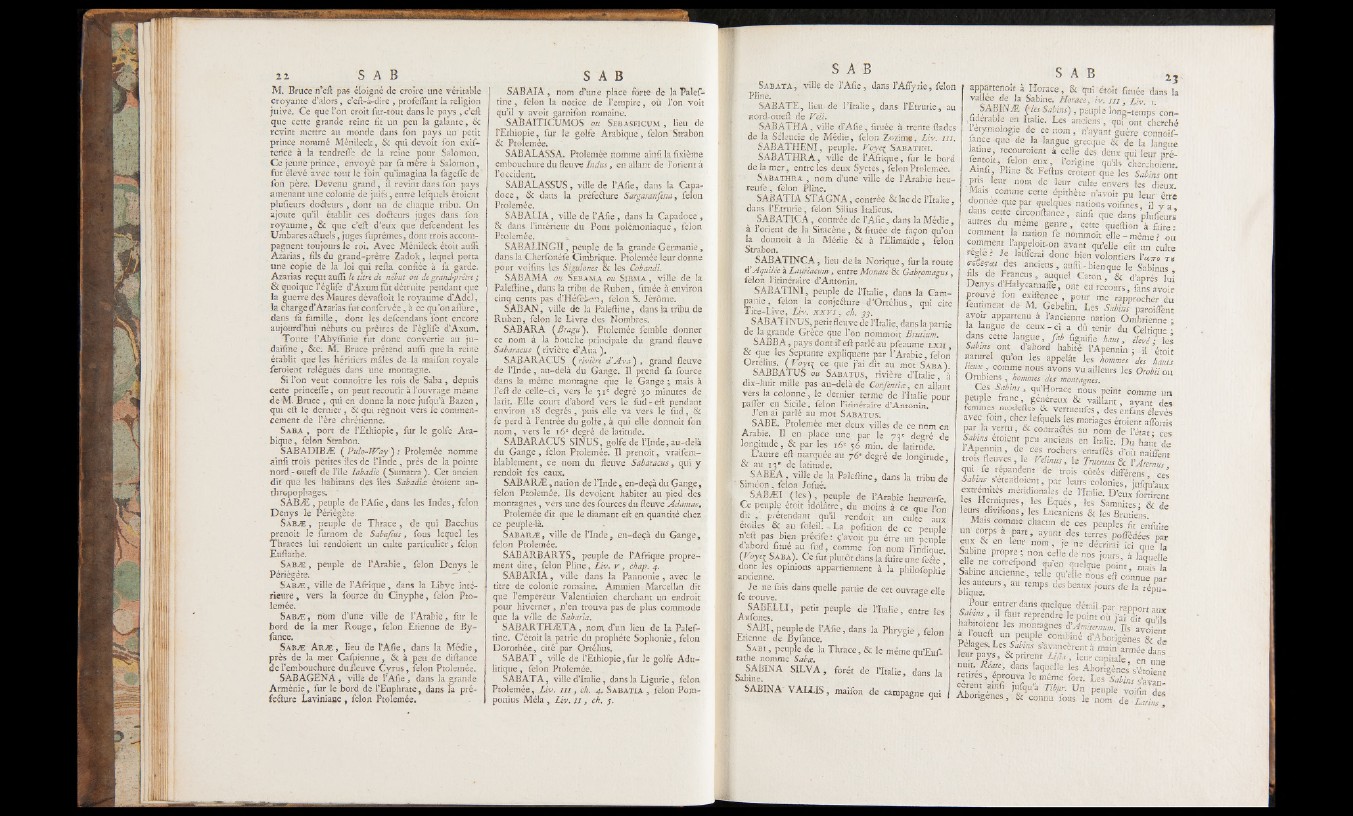 22 S A B
M. Bruce n'eſt pas éloigné de croire une véritable
croyante d'alors, c'eſt-à-dire, profeſſant la religion
juive. Ce que l'on croit ſur-tout dans le pays, c'eſt
que cette grande reine fit un peu la galante, &
revint mettre au monde dans ſon pays un petit
prince nommé Ménileck, & qui devoit ſon exiſ-
tence à la tendreſſe de la reine pour Salomon.
Ce jeune prince, envoyé par ſa mère à Salomon,
fut élevé avec tout le ſoin qu'imagina la ſageſſe de
ſon père. Devenu grand, il revint dans ſon pays
amenant une colonie de juifs, entre leſquels étoient
pluſieurs docteurs, dont un de chaque tribu. On
ajoute qu'il établit ces docteurs juges dans ſon
royaume, & que c'eſt d'eux que deſcendent les
Umbares actuels, juges ſuprêmes, dont trois accom-
pagnent toujours le roi. Avec Ménileck étoit auſſi
Azarias, fils du grand-prêtre Zadok, lequel porta
une copie de la loi qui reſta confiée à ſa garde.
Azarias reçut auſſi le titre de nébrit ou de grand-prêtre;
& quoique l'égliſe d'Axum fût détruite pendant que
la guerre des Maures dévaſtoit le royaume d'Adel,
la charge d'Azarias fut conſervée, à ce qu'on aſſure,
dans ſa famille, dont les deſcendans ſont encore
aujourd'hui nébrits ou prêtres de l'égliſe d'Axum.
Toute l'Abyſſinie fut donc convertie au ju-
daïſme, &c. M. Bruce prétend auſſi que la reine
établit que les héritiers mâles de la maiſon royale
ſeroient relégués dans une montagne.
Si l'on veut connoître les rois de Saba, depuis
cette princeſſe, on peut recourir à l'ouvrage même
de M. Bruce, qui en donne la note juſqu'à Bazen,
qui eſt le dernier, & qui régnoit vers le commen-
cement de l'ère chrétienne.
SABA, port de l'Éthiopie, ſur le golfe Ara-
bique, ſelon Strabon.
SABADIBÆ (Pulo-Way): Ptolemée nomme
ainſi trois petites îles de l'Inde, près de la pointe
nord-oueſt de l'île Iabadiæ (Sumatra). Cet ancien
dit que les habitans des îles Sabadiæ étoient an-
thropophages.
SABÆ, peuple de l'Aſie, dans les Indes, ſelon
Denys le Périégète
SABÆ, peuple de Thrace, de qui Bacchus
prenoit le ſurnom de Sabaſius, ſous lequel les
Thraces lui rendoient un culte particulier, ſelon
Euſtathe.
SABÆ, peuple de l'Arabie, ſelon Denys le
Périégète.
SABÆ, ville de l'Afrique, dans la Libye inté-
rieure, vers la ſource du Cinyphe, ſelon Pto-
lemée.
SABÆ, nom d'une ville de l'Arabie, ſur le
bord de la mer Rouge, ſelon Etienne de By-
ſance.
SABÆ ARÆ, lieu de l'Aſie, dans la Médie,
près de la mer Caſpienne, & à peu de diſtance
de l'embouchure du fleuve Cyrus, ſelon Ptolemée.
SABAGENA, ville de l'Aſie, dans la grande
Arménie, ſur le bord de l'Euphrate, dans la pré-
fecture Laviniane, ſelon Ptolemée.
S A B
SABAIA, nom d'une place forte de la Paleſ-
tine, ſelon la notice de l'empire, où l'on voit
qu'il y avoit garniſon romaine.
SABAITICUMOS ou SEBASTICUM, lieu de
l'Éthiopie, ſur le golfe Arabique, ſelon Strabon
& Ptolemée.
SABALASSA. Ptolemée nomme ainſi la ſixième
embouchure du fleuve Indus, en allant de l'orient à
l'occident.
SABALASSUS, ville de l'Aſie, dans la Capa-
doce, & dans la préfecture Sargarauſena, ſelon
Ptolemée.
SABALIA, ville de l'Aſie, dans la Capadoce,
& dans l'intérieur du Pont polémoniaque, ſelon
Ptolemée.
SABALINGII, peuple de la grande Germanie,
dans la Cherſonèſe Cimbrique. Ptolemée leur donne
pour voiſins les Sigulones & les Cobandi.
SABAMA ou SEBAMA ou SIBMA, ville de la
Paleſtine, dans la tribu de Ruben, ſituée à environ
cinq cents pas d'Héſebon, ſelon S. Jérôme.
SABAN, ville de la Paleſtine, dans la tribu de
Ruben, ſelon le Livre des Nombres.
SABARA (Bragu). Ptolemée ſemble donner
ce nom à la bouche principale du grand fleuve
Sabaracus (rivière d'Ava).
SABARACUS (rivière d'Ava), grand fleuve
de l'Inde, au-delà du Gange. Il prend ſa ſource
dans la même montagne que le Gange; mais à
l'eſt de celle-ci, vers le 31e degré 30 minutes de
latit. Elle court d'abord vers le ſud-eſt pendant
environ 18 degrés, puis elle va vers le ſud, &
ſe perd à l'entrée du golfe, à qui elle donnoit ſon
nom, vers le 16e degré de latitude.
SABARACUS SINUS, golfe de l'Inde, au-delà
du Gange, ſelon Ptolemée. Il prenoit, vraiſem-
blablement, ce nom du fleuve Sabaracus, qui y
rendoit ſes eaux.
SABARÆ, nation de l'Inde, en-deçà du Gange,
ſelon Ptolemée. Ils devoient habiter au pied des
montagnes, vers une des ſources du fleuve Adamas.
Ptolemée dit que le diamant eſt en quantité chez
ce peuple-là.
SABARÆ, ville de l'Inde, en-deçà du Gange,
ſelon Ptolemée.
SABARBARYS, peuple de l'Afrique propre-
ment dite, ſelon Pline, Liv. v, chap. 4.
SABARIA, ville dans la Pannonie, avec le
titre de colonie romaine. Ammien Marcellin dit
que l'empereur Valentinien cherchant un endroit
pour hiverner, n'en trouva pas de plus commode
que la ville de Sabaria.
SABARTHÆTA, nom d'un lieu de la Paleſ-
tine. C'étoit la patrie du prophète Sophonie, ſelon
Dorothée, cité par Ortélius.
SABAT, ville de l'Ethiopie, ſur le golfe Adu-
litique, ſelon Ptolemée.
SABATA, ville d'Italie, dans la Ligurie, ſelon
Ptolemée, Liv. III, ch. 4. SABATIA, ſelon Pom-
ponius Méla, Liv. II, ch. 5.
S A B
SABATA, ville de l'Aſie, dans l'Aſſyrie, ſelon
Pline.
SABATE, lieu de l'Italie, dans l'Etrurie, au
nord-oueſt de Veii.
SABATHA, ville d'Aſie, ſituée à trente ſtades
de la Séleucie de Médie, ſelon Zozime, Liv. III.
SABATHENI, peuple. Voyez SABATINI.
SABATHRA, ville de l'Afrique, ſur le bord
de la mer, entre les deux Syrtes, ſelon Ptolemée.
SABATHRA, nom d'une ville de l'Arabie heu-
reuſe, ſelon Pline.
SABATIA STAGNA, contrée & lac de l'Italie,
dans l'Etrurie, ſelon Silius Italicus.
SABATICA, contrée de l'Aſie, dans la Médie,
à l'orient de la Sitacène, & ſituée de façon qu'on
la donnoit à la Médie & à l'Elimaïde, ſelon
Strabon.
SABATINCA, lieu de la Norique, ſur la route
d'Aquilée à Lauriacum, entre Monate & Gabromagus,
ſelon l'itinéraire d'Antonin.
SABATINI, peuple de l'Italie, dans la Cam-
panie, ſelon la conjecture d'Ortélius, qui cite
Tite-Live, Liv. XXVI, ch. 33.
SABATINUS, petit fleuve de l'Italie, dans la partie
de la grande Grèce que l'on nommoit Brutium.
SABBA, pays dont il eſt parlé au pſeaume LXII,
& que les Septante expliquent par l'Arabie, ſelon
Ortélius. (Voyez ce que j'ai dit au mot SABA).
SABBATUS ou SABATUS, rivière d'Italie, à
dix-huit mille pas au-delà de Conſentia, en allant
vers la colonne, le dernier terme de l'Italie pour
paſſer en Sicile, ſelon l'itinéraire d'Antonin.
J'en ai parlé au mot SABATUS.
SABE. Ptolemée met deux villes de ce nom en
Arabie. Il en place une par le 73e degré de
longitude, & par les 16e 56 min. de latitude.
L'autre eſt marquée au 76e degré de longitude,
& au 13e de latitude.
SABEA, ville de la Paleſtine, dans la tribu de
Siméon, ſelon Joſué.
SABÆI (les), peuple de l'Arabie heureuſe.
Ce peuple étoit idolâtre, du moins à ce que l'on
dit, prétendant qu'il rendoit un culte aux
étoiles & au ſoleil. La poſition de ce peuple
n'eſt pas bien préciſe: ç'avoit pu être un peuple
d'abord ſitué au ſud, comme ſon nom l'indique.
(Voyez SABA). Ce fut plutôt dans la ſuite une ſecte,
dont les opinions appartiennent à la philoſophie
ancienne.
Je ne ſais dans quelle partie de cet ouvrage elle
ſe trouve.
SABELLI, petit peuple de l'Italie, entre les
Auſones.
SABI, peuple de l'Aſie, dans la Phrygie, ſelon
Etienne de Byſance.
SABI, peuple de la Thrace, & le même qu'Euſ-
tathe nomme Sabæ.
SABINA SILVA, forêt de l'Italie, dans la
Sabine.
SABINA VALLIS, maiſon de campagne qui
S A B 23
appartenoit à Horace, & qui étoit ſituée dans la
vallée de la Sabine. Horace, iv. III, Liv. 1.
SABINÆ (les Sabins), peuple long-temps con-
ſidérable en Italie. Les anciens, qui ont cherché
l'étymologie de ce nom, n'ayant guère connoiſ-
ſance que de la langue grecque & de la langue
latine, recouroient à celle des deux qui leur pré-
ſentoit, ſelon eux, l'origine qu'ils cherchoient.
Ainſi, Pline & Feſtus croient que les Sabins ont
pris leur nom de leur culte envers les dieux.
Mais comme cette épithète n'avoit pu leur être
donnée que par quelques nations voiſines, il y a,
dans cette circonſtance, ainſi que dans pluſieurs
autres du même genre, cette queſtion à faire:
comment la nation ſe nommoit elle-même? ou
comment l'appeloit-on avant qu'elle eût un culte
réglé? Je laiſſerai donc bien volontiers l'ἀπὸ τοῦ
σέβεσθαι des anciens, auſſi-bien que le Sabinus,
fils de Francus, auquel Caton, & d'après lui
Denys d'Halycarnaſſe, ont eu recours, ſans avoir
prouvé ſon exiſtence, pour me rapprocher du
ſentiment de M. Gebelin. Les Sabins paroiſſent
avoir appartenu à l'ancienne nation Ombrienne;
la langue de ceux-ci a dû tenir du Celtique;
dans cette langue, ſab ſignifie haut, élevé; les
Sabins ont d'abord habité l'Apennin; il étoit
naturel qu'on les appelât les hommes des hauts
lieux, comme nous avons vu ailleurs les Orobii ou
Orobiens, hommes des montagnes.
Ces Sabins, qu'Horace nous peint comme un
peuple franc, généreux & vaillant, ayant des
femmes modeſtes & vertueuſes, des enfans élevés
avec ſoin, chez leſquels les mariages étoient aſſortis
par la vertu, & contractés au nom de l'état; ces
Sabins étoient peu anciens en Italie. Du haut de
l'Apennin, de ces rochers entaſſés d'où naiſſent
trois fleuves, le Velinus, le Truentus & l'Aternus,
qui ſe répandent de trois côtés différens, ces
Sabins s'étendoient, par leurs colonies, juſqu'aux
extrémités méridionales de l'Italie. D'eux ſortirent
les Herniques, les Equès, les Samnites; & de
leurs diviſions, les Lucaniens & les Brutiens.
Mais comme chacun de ces peuples fit enſuite
un corps à part, ayant des terres poſſédées par
eux & en leur nom, je ne décrirai ici que la
Sabine propre; non celle de nos jours, à laquelle
elle ne correſpond qu'en quelque point, mais la
Sabine ancienne, telle qu'elle nous eſt connue par
les auteurs, au temps des beaux jours de la répu-
blique.
Pour entrer dans quelque détail par rapport aux
Sabins, il faut reprendre le point où j'ai dit qu'ils
habitoient les montagnes d'Amiternum. Ils avoient
à l'oueſt un peuple combiné d'Aborigènes & de
Pélages. Les Sabins s'avancèrent à main armée dans
leur pays, & prirent Liſta, leur capitale, en une
nuit. Réate, dans laquelle les Aborigènes s'étoient
retirés, éprouva le même ſort. Les Sabins s'avan-
cèrent ainſi juſqu'à Tibur. Un peuple voiſin des
Aborigènes, & connu ſous le nom de Latins,